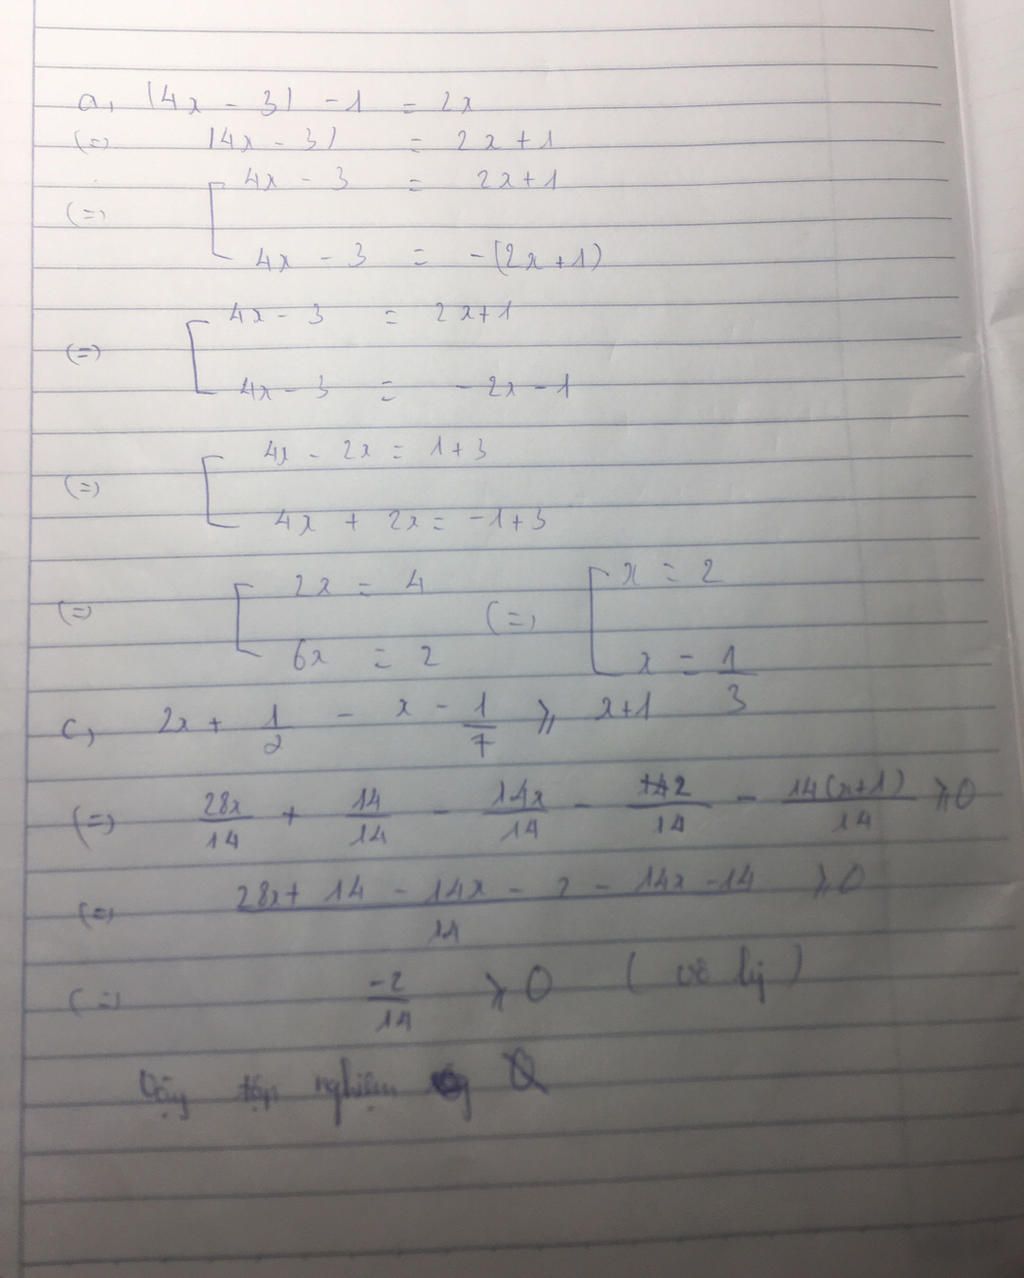 a, |4x - 3| - 1 = 2x
(=) |4x - 3| = 2x + 1
(=) [ 4x - 3 = 2x + 1
4x - 3 = -(2x + 1)
(=) [ 4x - 3 = 2x + 1
4x - 3 = -2x - 1
(=) [ 4x - 2x = 1 + 3
4x + 2x = -1 + 3
(=) [ 2x = 4 (=) [ x = 2
6x = 2 x = 1/3
c, 2x + 1/2 - x - 1/7 ⩾ x + 1
(=) 28x/14 + 14/14 - 14x/14 - 2/14 - 14(x+1)/14 ⩾ 0
(=) (28x + 14 - 14x - 2 - 14x - 14)/14 ⩾ 0
(=) -2/14 ⩾ 0 (vô lý)
Vậy tập nghiệm Ø